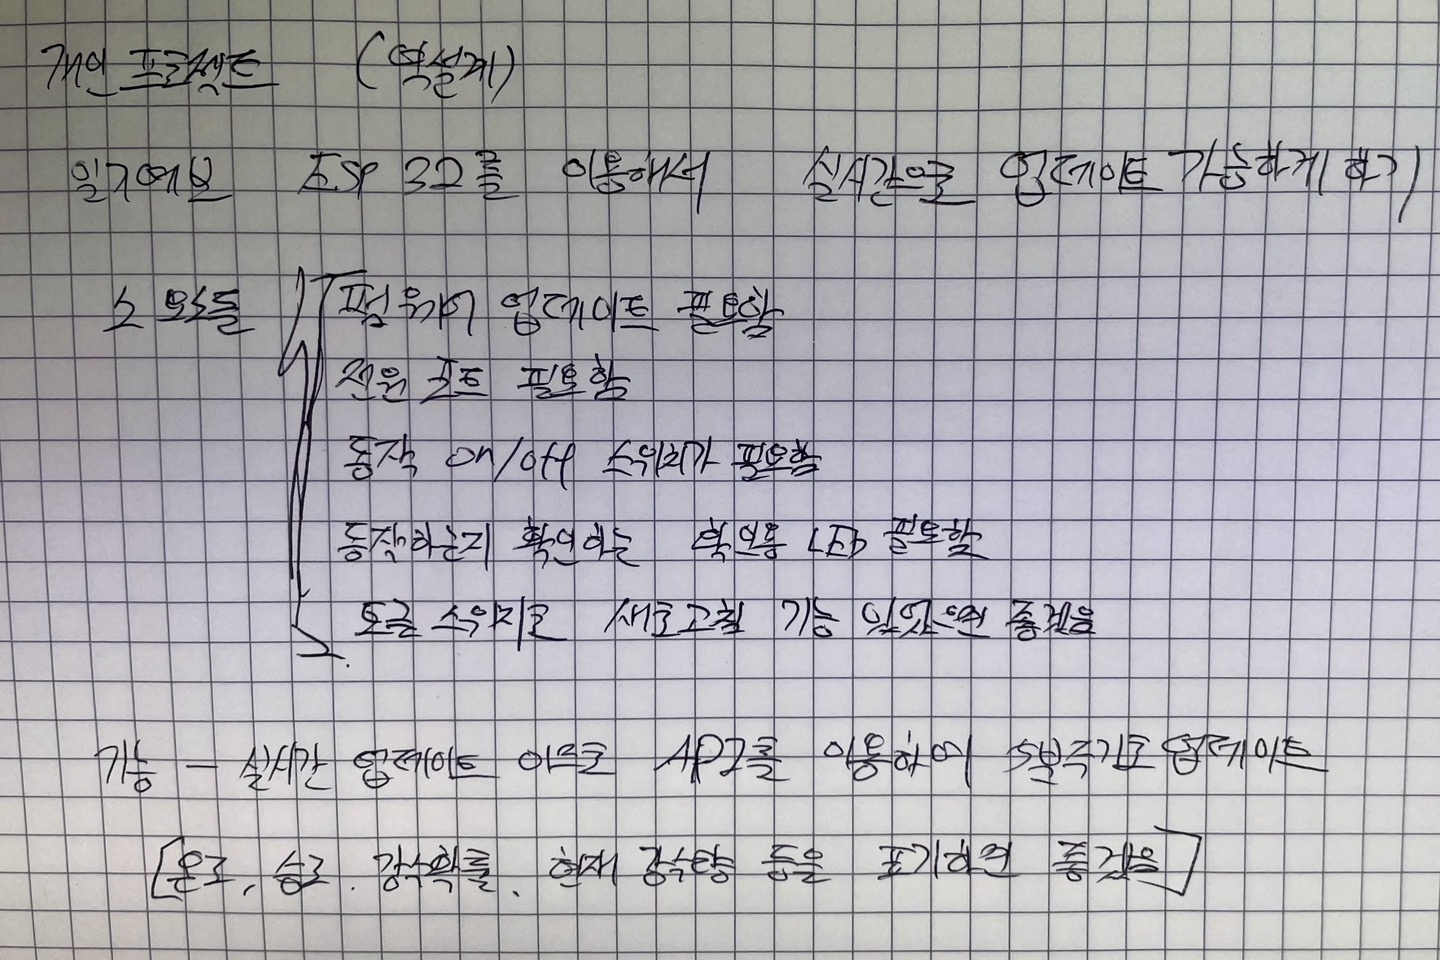 개인 프로젝트 (역설계)
일기예보 ESP 32를 이용해서 실시간으로 업데이트 가능하게 하기
펌웨어 업데이트 필요함
전원 포트 필요함
동작 on/off 스위치가 필요함
동작하는지 확인하는 확인용 LED 필요함
토글 스위치로 새로고침 기능 있었으면 좋겠음
기능 - 실시간 업데이트 API를 이용하여 5분주기로 업데이트
[온도, 습도, 강수확률, 현재 강수량 등을 표기하면 좋겠음]